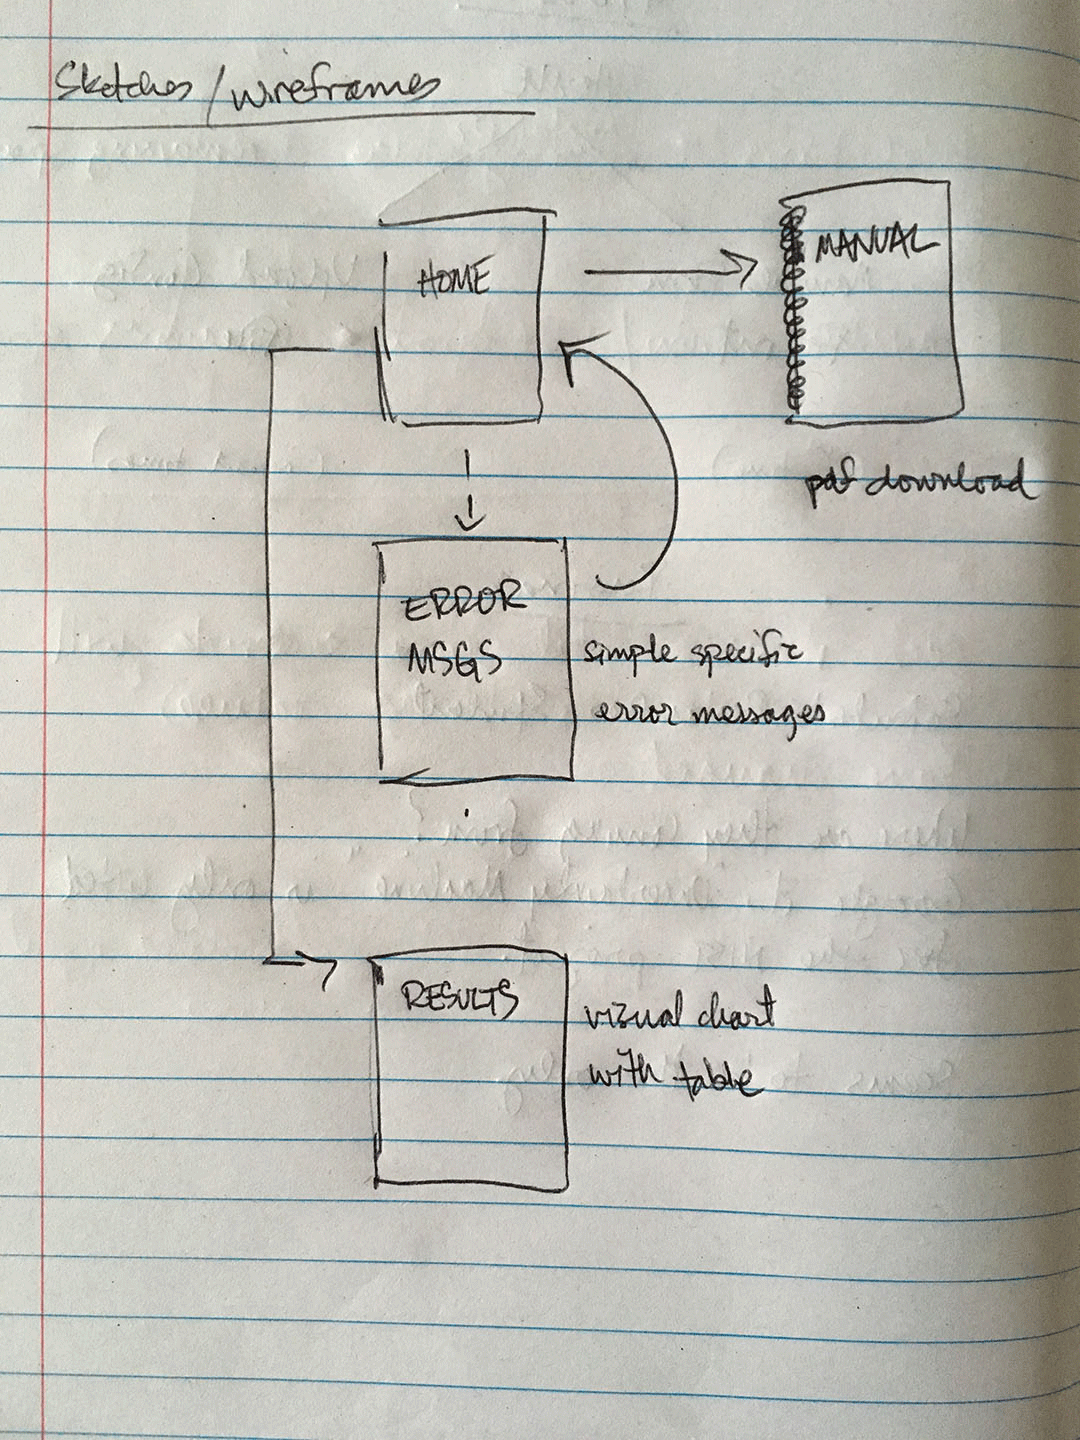 Sketches/wireframes
HOME
MANUAL
pdf download
ERROR
MSGS
simple specific
error messages
RESULTS
visual chart
with table